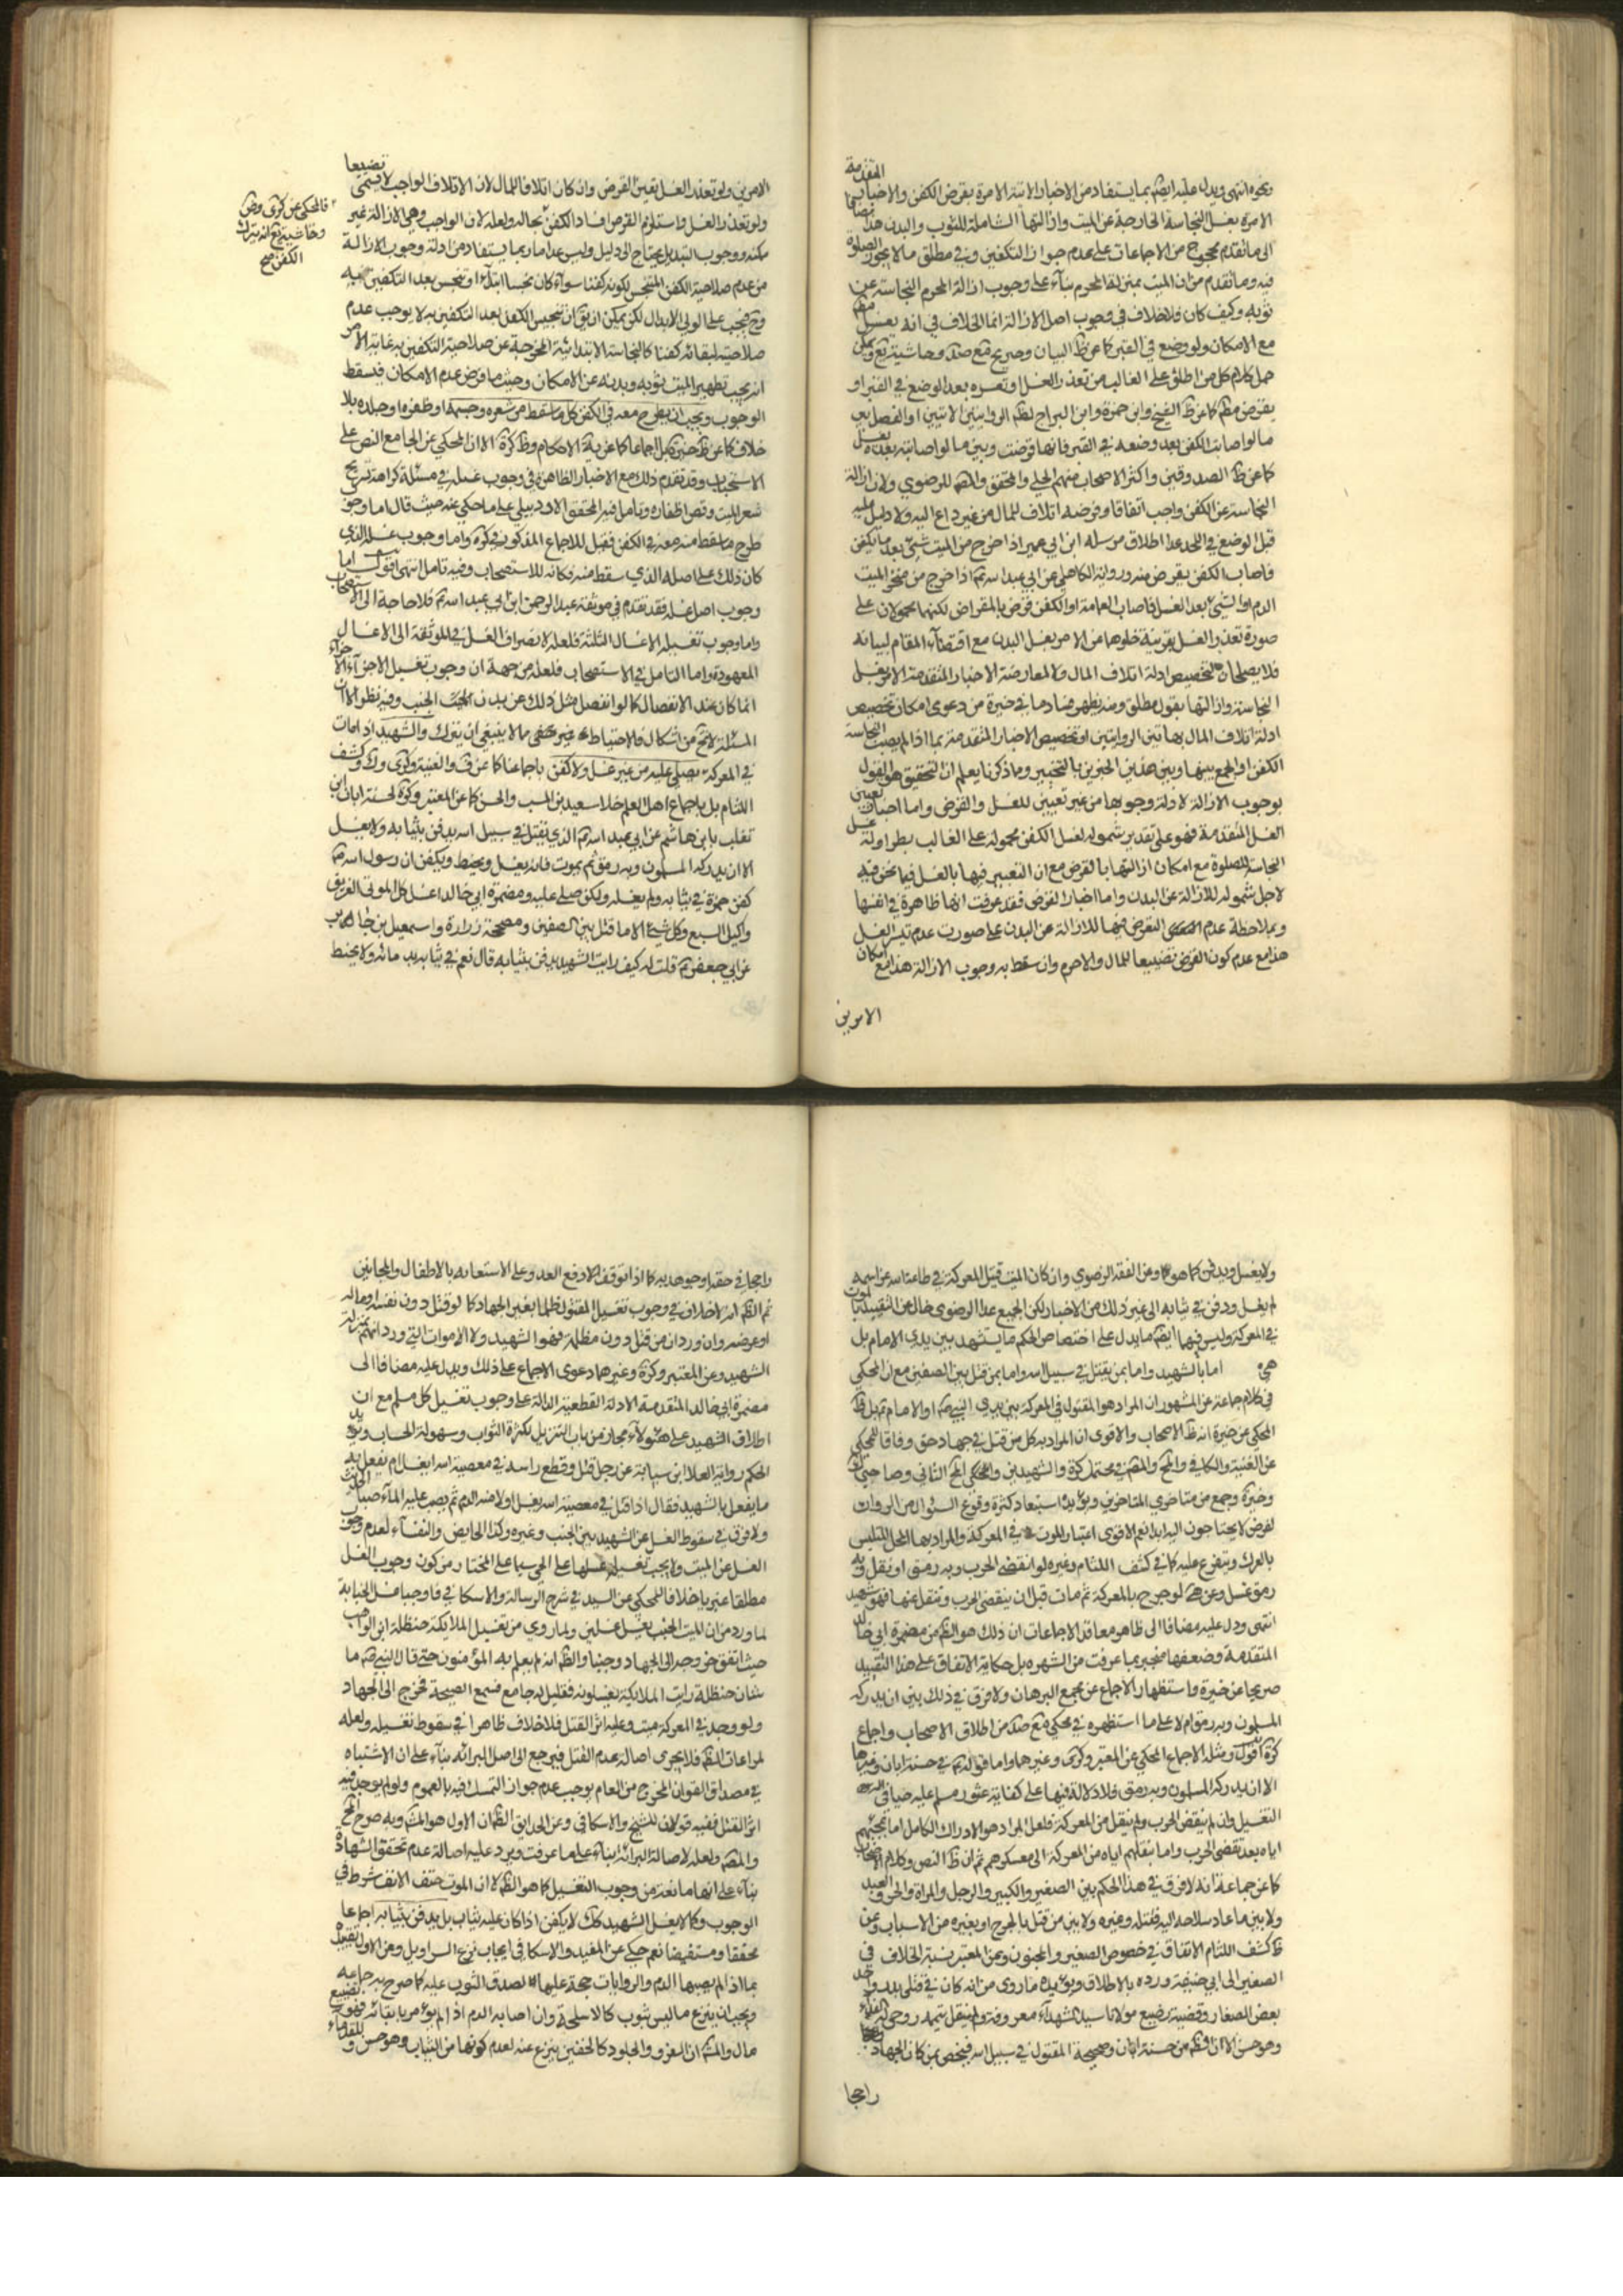 ونحوه انتهى ويدل عليه ايضا ما يستفاد من الاخبار الاتية الامرة بقرض الكفن والاخبار المتقدمة
الامرة بغسل النجاسة الخارجة عن الميت وازالتها الشاملة للثوب والبدن هذا مضافا
الى ما تقدم من الاجماعات على عدم جواز التكفين في مطلق ما لا يجوز الصلوة
فيه وما تقدم من ان الميت بمنزلة المحرم بناء على وجوب ازالة المحرم النجاسة عن
ثوبه وكيف كان فلا خلاف في وجوب اصل الازالة انما الخلاف في انه يغسل
مع الامكان ولو وضع في القبر كما عن ظ البيان وصريح مع صد وحاشية يع ويمكن
حمل كلام كل من اطلق على الغالب من تعذر الغسل او تعسره بعد الوضع في القبر او
يقرض مطم كما عن ظ الشيخ وابن حمزة وابن البراج لظم الروايتين الاتيتين او الفصل بين
ما لو اصابت الكفن بعد وضعه في القبر فانها قرضت وبين ما لو اصابته بعده يغسل
كما عن ظ الصدوقين واكثر الاصحاب منهم الحلي والمحقق للرضوي ولان ازالة
النجاسة عن الكفن واجب اتفاقا وقرضه اتلاف للمال من غير داع اليه ولا دليل عليه
قبل الوضع في اللحد عدا اطلاق مرسلة ابن ابي عمير اذا خرج من الميت شئ بعد ما يكفن
فاصاب الكفن يقرض منه ورواية الكاهلي عن ابي عبد الله ع اذا خرج من منخر الميت
الدم او الشئ بعد الغسل فاصاب العمامة او الكفن قرض بالمقراض لكنهما محمولان على
صورة تعذر الغسل بقرينة خلوهما من الامر بغسل البدن مع اقتضاء المقام لبيانه
فلا يصلحان لتخصيص ادلة اتلاف المال ولا لمعارضة الاخبار المتقدمة الامر بغسل
النجاسة وازالتها بقول مطلق ومنه يظهر فساد ما في خيرة من دعوى امكان تخصيص
ادلة اتلاف المال بهاتين الروايتين او تخصيص الاخبار المتقدمة بما اذا لم يصب النجاسة
الكفن او الجمع بينها وبين هذين الخبرين بالتخيير وما ذكرنا يعلم ان التحقيق هو القول
بوجوب الازالة لادلة وجوبها من غير تعيين للغسل والقرض واما اخبار تعيين
الغسل المتقدمة فهو على تقدير شموله لغسل الكفن محمولة على الغالب
النجاسة للصلوة مع امكان ازالتها بالقرض مع ان التعبير فيها بالغسل فيما نحن فيه
لاجل شموله للازالة عن البدن واما اخبار القرض فقد عرفت انها ظاهرة في انفسها
وبملاحظة عدم التعرض فيها للازالة عن البدن على صورت عدم تيسر الغسل
هذا مع عدم كون القرض تضييعا للمال والا حرم وان سقط به وجوب الازالة هذا مع امكان
الامرين
الامرين ولو تعذر الغسل يتعين القرض وان كان اتلافا للمال لان الاتلاف الواجب لا يسمى تضييعا
ولو تعذر الغسل واستلزم القرض افساد الكفن بحاله ولعله لان الواجب وهي الازالة غير
ممكنة ووجوب التبديل يحتاج الى دليل وليس عدا ما ربما يستفاد من ادلة وجوب الازالة
من عدم صلاحية الكفن المتنجس لكونه كفنا سواء كان نجسا ابتداء او تنجس بعد التكفين به
وح فيجب على الولي الابدال لكن يمكن ان يق ان تنجيس الكفن بعد التكفين به لا يوجب عدم
صلاحيته لبقائه كفنا كالنجاسة الابتدائية المخرجة عن صلاحية التكفين به غاية الامر
انه يجب تطهير الميت ثوبه وبدنه عن الامكان وحيث ما فرض عدم الامكان فيسقط
الوجوب ويجب ان يطرح معه في الكفن كل ما سقط من شعره وجسمه او ظفره او جلده بلا
خلاف كما عن ظ خيرة بل اجماعا كما عن نهاية الاحكام وظ كرة الا ان المحكي عن الجامع النص على
الاستحباب وقد تقدم ذلك مع الاخبار الظاهرة في وجوب غسله في مسئلة كراهة تسريح
شعر الميت وقص اظفاره وتامل فيه المحقق الاردبيلي على ما حكي عنه حيث قال اما وجوب
طرح ما سقط منه معه في الكفن فقيل للاجماع المذكور في كرة واما وجوب غسله الذي
كان ذلك على اصله الذي سقط منه فكانه للاستصحاب وفيه تامل انتهى اقول اما
وجوب اصل غسله فقد تقدم في موثقة عبد الرحمن ابن ابي عبد الله ع فلا حاجة الى الاستصحاب
واما وجوب تغسيله الاغسال الثلثة فلعله لانصراف الغسل في الموثقة الى الاغسال
المعهودة واما التامل في الاستصحاب فلعله من جهة ان وجوب تغسيل الاجزاء
انما كان عند الاتصال كما لو انفصل مثل ذلك عن بدن الجنب وفيه نظر الا ان
المسئلة لا تخ من اشكال فالاحتياط غير مخفى مما لا ينبغي ان يترك والشهيد اذا مات
في المعركة يصلى عليه من غير غسل ولا كفن باجماعنا كما عن ف والغنية وكرى وك وكشف
اللثام بل باجماع اهل العلم خلا سعيد بن المسيب والحسن كما عن المعتبر وكرة لحسنة ابان ابن
تغلب بابن هاشم عن ابي عبد الله ع الذي يقتل في سبيل الله يدفن بثيابه ولا يغسل
الا ان يدركه المسلمون وبه رمق ثم يموت فانه يغسل ويحنط ويكفن ان رسول الله ص
كفن حمزة في ثيابه ولم يغسله ولكن صلى عليه ومضمرة ابي خالد اغسل كل الموتى الغريق
واكيل السبع وكل شئ الا ما قتل بين الصفين ومصححة زرارة واسمعيل بن جابر
عن ابي جعفر ع قلت له كيف رايت الشهيد يدفن بثيابه قال نعم في ثيابه بدمائه ولا يحنط
فالمحكي عن كرى وض
وحاشية يع انه يترك
الكفن صح
ولا يغسل ويدفن كما هو وعن الفقه الرضوي وان كان الميت قتيل المعركة في طاعة الله عز اسمه
لم يغسل ودفن في ثيابه الى غير ذلك من الاخبار لكن الجميع عدا الرضوي خال عن التقييد بالموت
في المعركة وليس فيها ايضا ما يدل على اختصاص الحكم بما يستشهد بين يدي الامام بل
هي اما بالشهيد واما بمن يقتل في سبيل الله واما بمن قتل بين الصفين مع ان المحكي
في كلام جماعة عن المشهور ان المراد هو المقتول في المعركة بين يدي النبي ص او الامام ع بل ظ
المحكي عن خيرة انه ظ الاصحاب والاقوى ان المراد به كل من قتل في جهاد حق وفاقا للمحكي
عن الغنية والكافي في محتمل كرة والشهيدين والمحكي المحقق الثاني وصاحبي ك
وخيرة وجمع من متاخري المتاخرين ويؤيده استبعاد كثرة وقوع السؤال من الروات
لفرض لا يحتاجون اليه ابدا نعم الاقوى اعتبار الموت في المعركة والمراد بها المحل المتلبس
بالعرك ويتفرع عليه كما في كشف اللثام وغيره لو انقضى الحرب وبه رمق او نقل وبه
رمق غسل وعن لو جرح بالمعركة ثم مات قبل ان ينقضي الحرب وينقل عنها فهو شهيد
انتهى ودل عليه مضافا الى ظاهر معاقد الاجماعات ان ذلك هو الظم من مضمرة ابي خالد
المتقدمة وضعفها منجبر بما عرفت من الشهره بل حكاية الاتفاق على هذا التقييد
صريحا عن خيرة واستظهار الاجماع عن مجمع البرهان ولا فرق في ذلك بين ان يدركه
المسلمون وبه رمق ام لا على ما استظهره في محكي مع صد من اطلاق الاصحاب واجماع
كرة اقول ومثله الاجماع المحكي عن المعتبر وكرى وغيرهما واما قوله ع في حسنة ابان وغيرها
الا ان يدركه المسلمون وبه رمق فلا دلالة فيها على كفاية عثور مسلم عليه حيا في
التغسيل وان لم ينقض الحرب ولم ينقل من المعركة فلعل المراد هو الادراك الكامل اما بمجيئهم
اياه بعد تقضي الحرب واما بنقلهم اياه من المعركة الى معسكرهم ثم ان ظ النص وكلام الاصحاب
كما عن جماعة انه لا فرق في هذا الحكم بين الصغير والكبير والرجل والمراة والحر والعبد
ولا بين ما عاد سلاحه اليه فقتله وغيره ولا بين من قتل بالجرح او بغيره من الاسباب وعن
ظ كشف اللثام الاتفاق في خصوص الصغير والمجنون وعن المعتبر نسبة الخلاف في
الصغير الى ابي حنيفة ورده بالاطلاق ويؤيده ما روى من انه كان في قتلى بدر واحد
بعض الصغار وقضية رضيع مولانا سيد الشهداء معروفة ولم ينقل تيممه روحي له الفداء
وهو حسن الا ان الظم من حسنة ابان وصحيحة المقتول في سبيل الله فيختص بمن كان الجهاد
راجحا
راجحا في حقه او جوهد به كما اذا توقف دفع العدو على الاستعانه بالاطفال والمجانين
ثم الظم انه لا خلاف في وجوب تغسيل المقتول ظلما بغير الجهاد كما لو قتل دون نفسه او ماله
او عرضه وان ورد ان من قتل دون مظلمته فهو الشهيد ولا الاموات التي ورد انهم بمنزلة
الشهيد وعن المعتبر وكرة وغيرهما دعوى الاجماع على ذلك ويدل عليه مضافا الى
مضمرة ابي خالد المتقدمة الادلة القطعية الدالة على وجوب تغسيل كل مسلم مع ان
اطلاق الشهيد على هؤلاء مجاز من باب التنزيل بكثرة الثواب وسهولة الحساب ويؤيد
الحكم رواية العلا ابن سيابة عن رجل قتل وقطع راسه في معصية الله ايغسل ام يفعل به
ما يفعل بالشهيد فقال اذا قتل في معصية الله يغسل اولا منه الدم ثم يصب عليه الماء صبا الحديث
ولا فرق في سقوط الغسل عن الشهيد بين الجنب وغيره وكذا الحايض والنفساء لعدم وجوب
الغسل عن الميت ولا يجب تغسيله غسلها على الحي سيما على المختار من كون وجوب الغسل
مطلقا غيريا خلافا للمحكي عن السيد في شرح الرسالة والاسكافي فاوجبا غسل الجنابة
لما ورد من ان الميت الجنب يغسل غسلين ولما روي من تغسيل الملائكة حنظلة ابن الراهب
حيث اتفق خروجه الى الجهاد جنبا والظم انه لم يعلم به المؤمنون حتى قال النبي ص ما
شان حنظلة رايت الملائكة يغسلونه فقيل له جامع فسمع الصيحة فخرج الى الجهاد
ولو وجد في المعركة ميت وعليه اثر القتل فلا خلاف ظاهرا في سقوط تغسيله ولعله
لمراعات الظم فلا يجرى اصالة عدم القتل فيرجع الى اصل البرائة بناء على ان الاشتباه
في مصداق العنوان المخرج من العام يوجب عدم جواز التمسك فيه بالعموم ولو لم يوجد فيه
اثر القتل ففيه قولان للشيخ والاسكافي وعن الحدائق الظم ان الاول هو المشهور وبه صرح
والمصم ولعله لاصالة البرائة بناء على ما عرفت ويرد عليه اصالة عدم تحقق الشهادة
بناء على انها مانعة من وجوب التغسيل كما هو الظم لا ان الموت حتف الانف شرط في
الوجوب وكما لا يغسل الشهيد كك لا يكفن اذا كان عليه ثياب بل يدفن بثيابه اجماعا
محققا ومستفيضا نعم حكي عن المفيد والاسكافي ايجاب نزع السراويل وعن الاول تقييده
بما اذا لم يصبها الدم والروايات حجة عليهما لصدق الثوب عليه كما صرح به جماعة
ويجب ان ينزع ما ليس بثوب كالاسلحة وان اصابه الدم اذ لم يؤمر بابقائه فهو تضييع
مال والمشهور ان الفرو والجلود كالخفين ينزع عنه لعدم كونها من الثياب وهو حسن